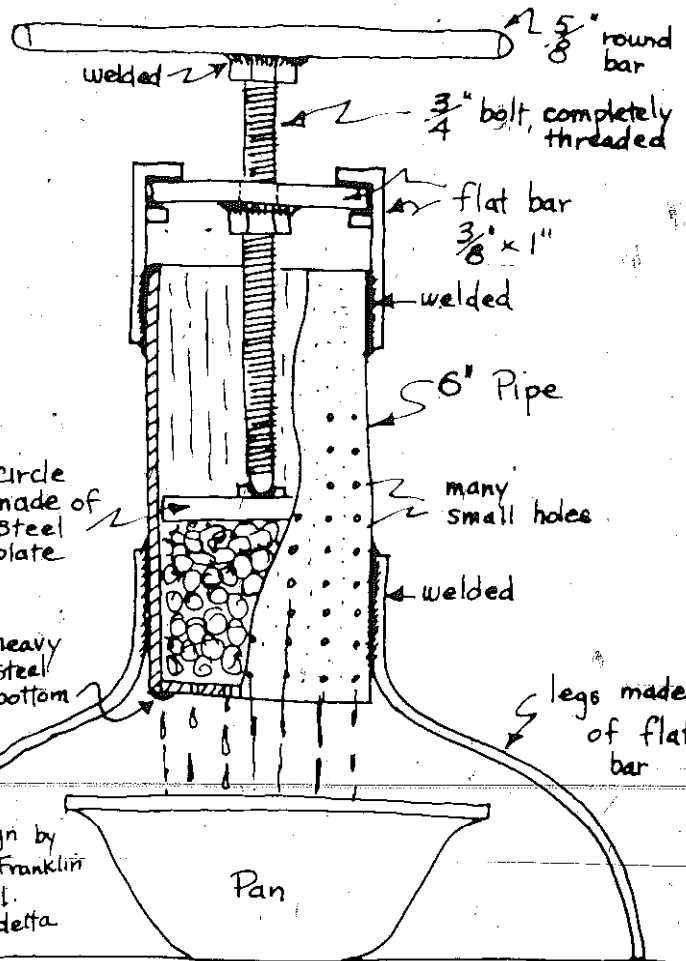 5/8" round
bar
welded
3/4" bolt, completely
threaded
flat bar
3/8" x 1"
welded
6" Pipe
circle
made of
Steel
plate
many
small holes
welded
heavy
steel
bottom
legs made
of flat
bar
by
Franklin
Pan